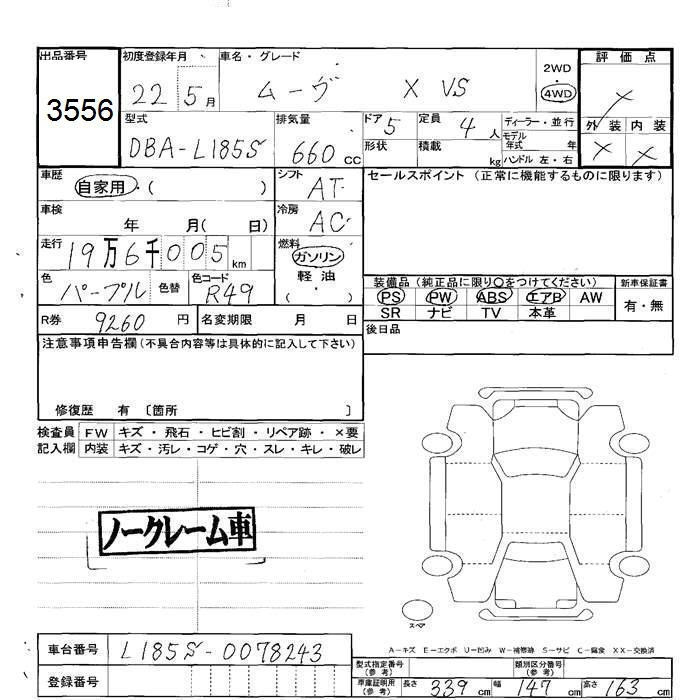 出品番号 初度登録年月 車名・グレード 2WD 評価点
3556 22 5月 ムーヴ X VS 4WD
外装 内装
型式 排気量 ドア 5 定員 4人 ディーラー・並行
DBA-L185S 660cc 形状 積載 kg モデル年式 年
ハンドル 左・右
車歴 自家用・( ) シフト AT セールスポイント (正常に機能するものに限ります)
車検 年 月( 日) 冷房 AC
走行 19万6千005km 燃料 ガソリン
軽油
( )
色 パープル 色替 色コード R49 装備品 (純正品に限り○をつけてください) 新車保証書
PS PW ABS エアB AW 有・無
SR ナビ TV 本革
R券 9260円 名変期限 月 日 後日品
注意事項申告欄(不具合内容等は具体的に記入して下さい)
修復歴 有 〔箇所 〕
検査員 FW キズ・飛石・ヒビ割・リペア跡・×要
記入欄 内装 キズ・汚レ・コゲ・穴・スレ・キレ・破レ
ノークレーム車
スペア
A-キズ E-エクボ U-凹み W-補修跡 S-サビ C-腐食 XX-交換済
車台番号 L185S-0078243
登録番号
型式指定番号(参考) 類別区分番号(参考)
車庫証明用(参考) 長さ 339cm 幅 147cm 高さ 163cm